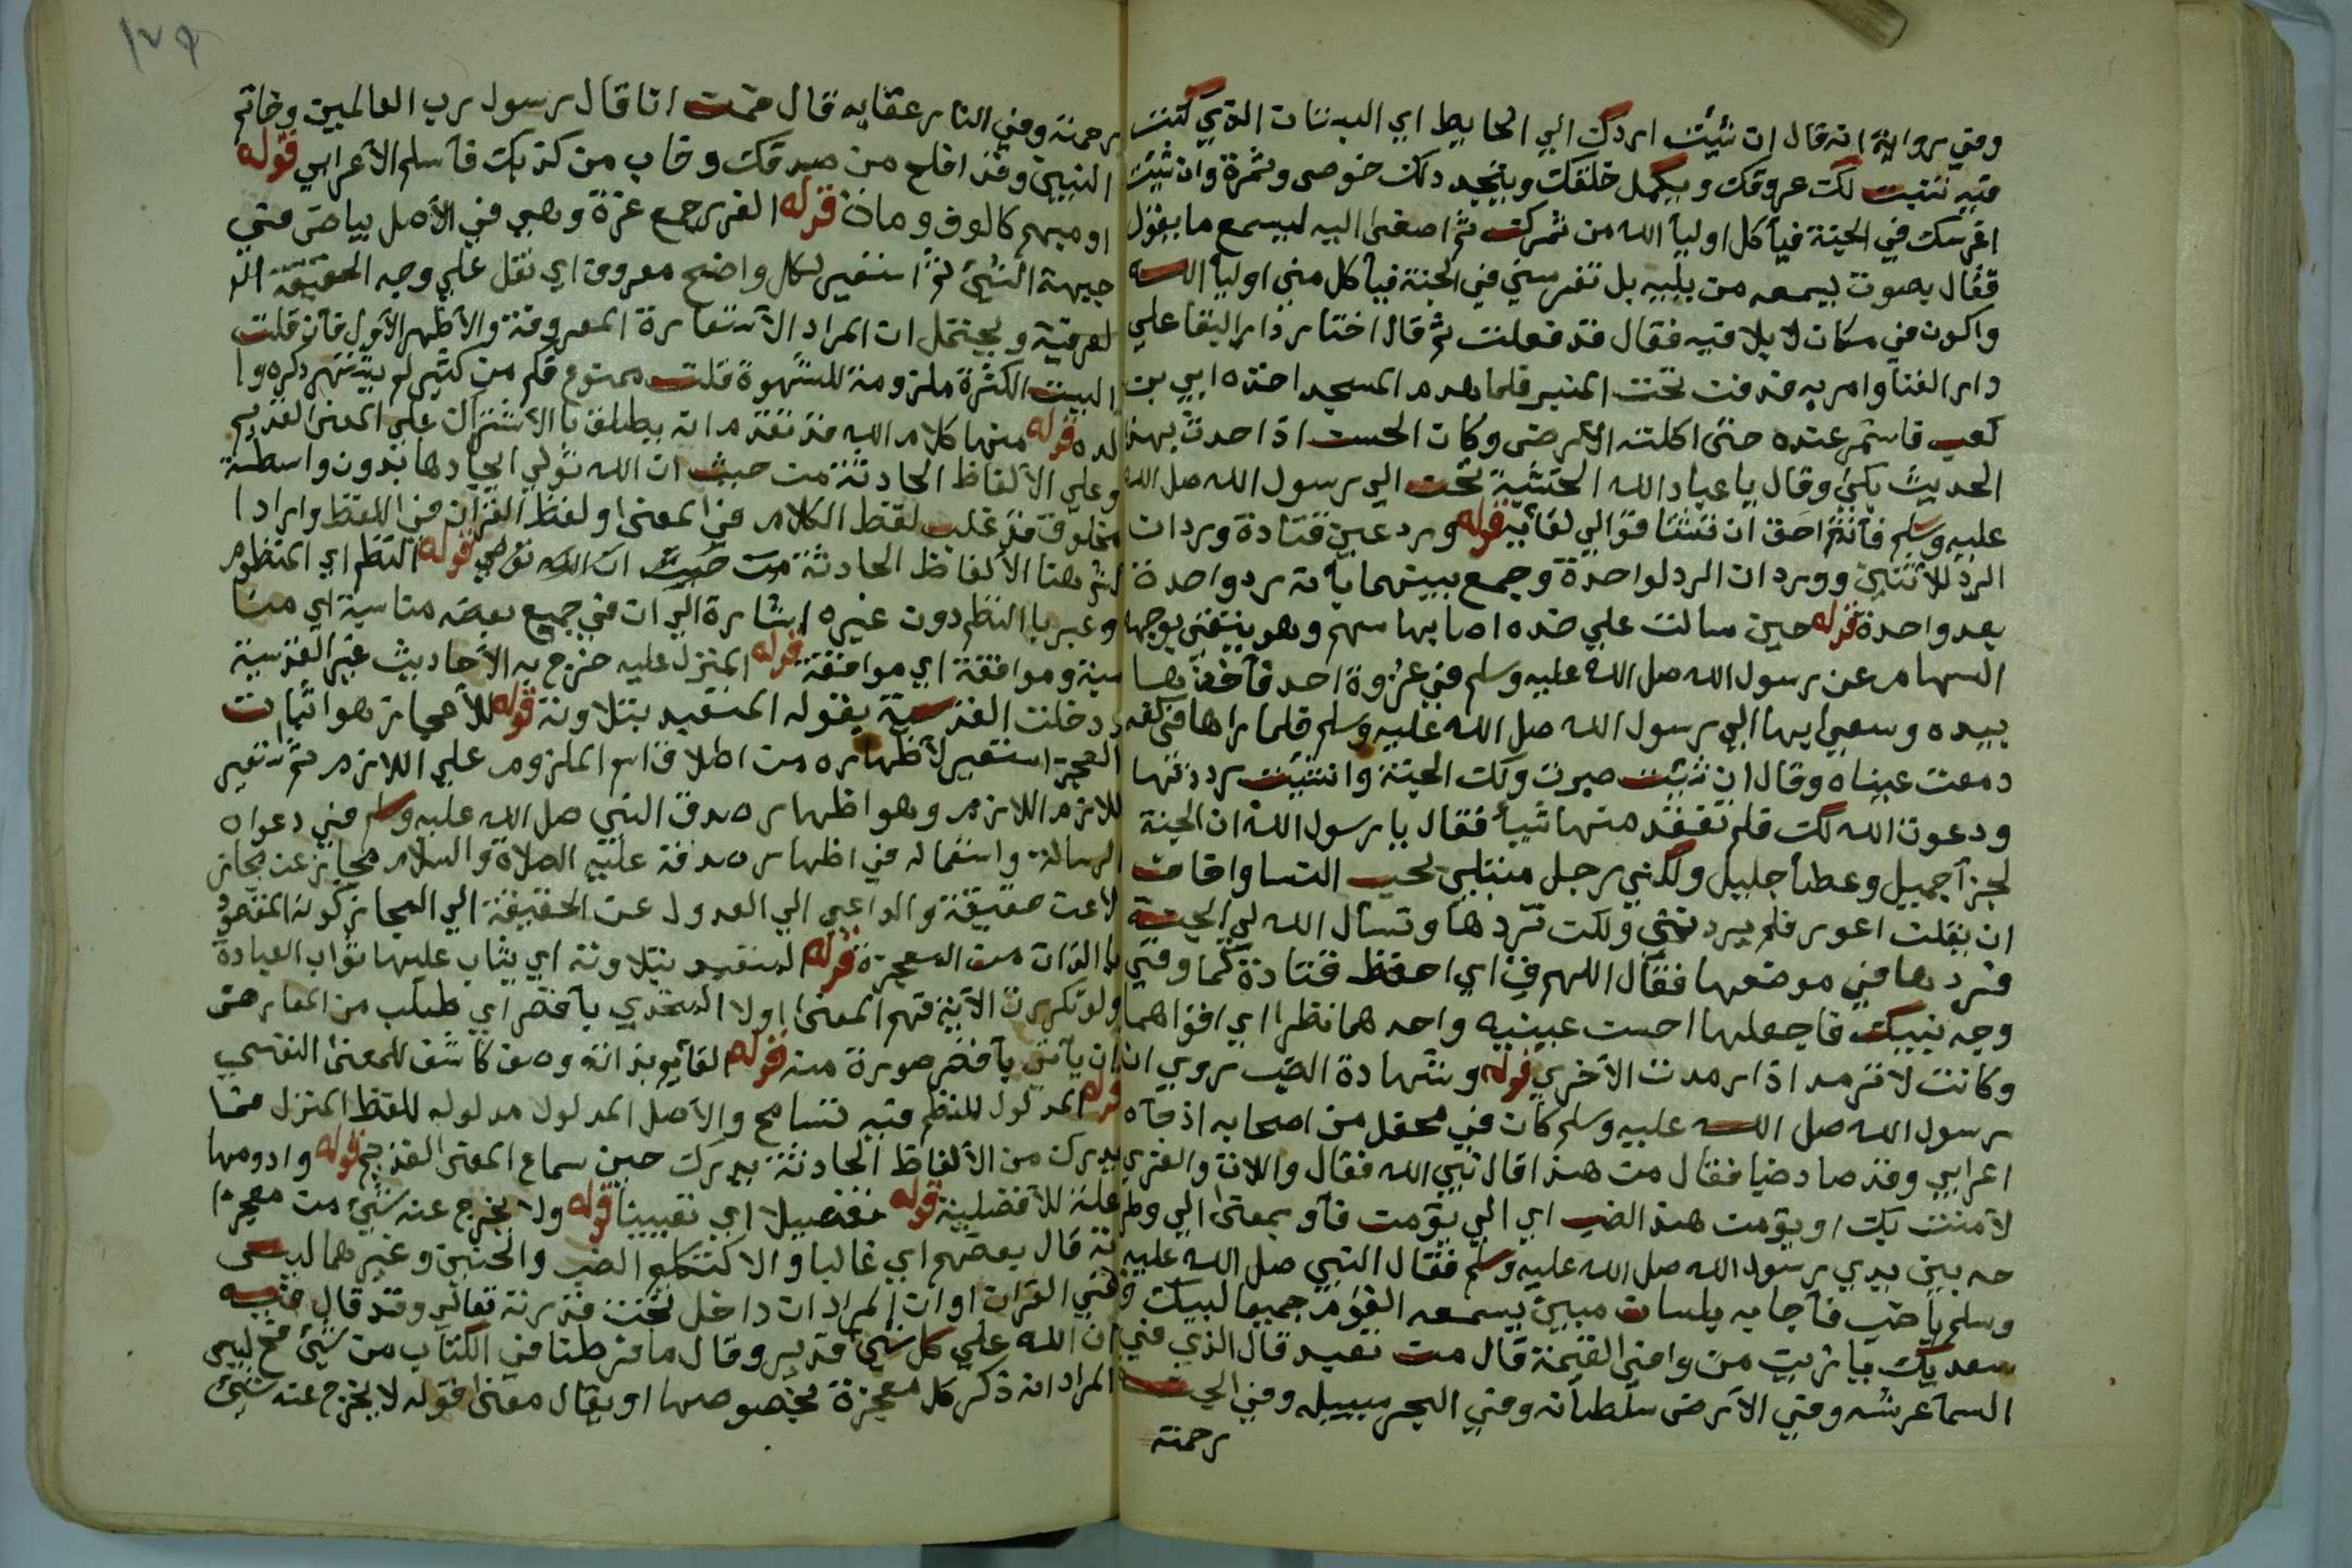 وفي رواية انه قال ان شئت اردك الي الحايط اي البستان الذي كنت
فيه تنبت لك عروقك ويكمل خلقك ويتجدد لك خوص وثمرة وان شئت
اغرسك في الجنة فيأكل اوليآ الله من ثمرك ثم اصغى اليه ليسمع ما يقول
فقال بصوت يسمعه من يليه بل تغرسني في الجنة فيأكل مني اوليآ الله
واكون في مكان لا بلا فيه فقال قد فعلت ثم قال اختار دار البقا علي
دار الفنا وامر به فدفن تحت المنبر فلما هدم المسجد اخذه ابي بن
كعب فاستمر عنده حتى اكلته الارض وكان الحسن اذا حدث بهذا
الحديث بكى وقال يا عباد الله الخشبة تحن الي رسول الله صل الله
عليه وسلم فأنتم احق ان تشتاقوا الي لقائه قوله ورد عين قتادة ورد ان
الرد للاثنين وورد ان الرد لواحدة وجمع بينهما بأنه رد واحدة
بعد واحدة قوله حين سالت علي خده اصابها سهم وهو يتقي بوجهه
السهام عن رسول الله صل الله عليه وسلم في غزوة احد فأخذها
بيده وسعى بها الي رسول الله صل الله عليه وسلم فلما راها في كفه
دمعت عيناه وقال ان شئت صبرت ولك الجنة وان شئت رددتها
ودعوت الله لك فلم تفقد منها شيأ فقال يا رسول الله ان الجنة
لجزآ جميل وعطأ جليل ولكني رجل مبتلي بحب النسا واخاف
ان يقلن اعور فلم يردنني ولكن تردها وتسأل الله لي الجنة
فردها في موضعها فقال اللهم ق اي احفظ قتادة كما وقي
وجه نبيك فاجعلها احسن عينيه واحدهما نظرا اي اقواهما
وكانت لا ترمد اذا رمدت الأخري قوله وشهادة الضب روي ان
رسول الله صل الله عليه وسلم كان في محفل من اصحابه اذ جآه
اعرابي وقد صاد ضبا فقال من هذا قال نبي الله فقال واللات والعزي
لا امنت بك او يؤمن هذا الضب اي الي يؤمن فأو بمعنى الي وطر
حه بين يدي رسول الله صل الله عليه وسلم فقال النبي صل الله عليه
وسلم يا ضب فأجابه بلسان مبين يسمعه القوم جميعا لبيك و
سعديك يا زين من وافي القيمة قال من تعبد قال الذي في
السمآ عرشه وفي الارض سلطانه وفي البحر سبيله وفي الجنة
رحمته
١٧٩
رحمته وفي النار عقابه قال فمن انا قال رسول رب العالمين وخاتم
النبيين وقد افلح من صدقك وخاب من كذبك فأسلم الأعرابي قوله
او مبهم كالوف ومان قوله الغرر جمع غرة وهي في الأصل بياض في
جبهة الشئ ثم استعير لكل واضح معروف اي نقل علي وجه الحقيقة ا
لعرفية ويحتمل ان المراد الاستعارة المعروفة والأظهر الأول فأن قلت
اليست الكثرة ملزومة للشهرة قلت ممنوع فكم من كثير لم يشتهر ذكره وا
لده قوله منها كلام الله قد تقدم انه يطلق بالاشتراك علي المعنى القديم
وعلي الألفاظ الحادثة من حيث ان الله تولي ايجادها بدون واسطة
مخلوق قد غلب لفظ الكلام في المعنى ولفظ القران في اللفظ وايراد ا
لثر هنا الألفاظ الحادثة من حيث ان الله تولي قوله النظم اي المنظوم
وعبر بالنظم دون غيره اشارة الي ان في جميع بعضه مناسبة اي منا
سبة وموافقة اي موافقة قوله المنزل عليه خرج به الأحاديث غير القدسية
ودخلت القدسية بقوله المتعبد بتلاوته قوله للأعجاز هو اثبات
العجز استعير لأظهاره من اطلاق اسم الملزوم علي اللازم ثم استعير
للازم اللازم وهو اظهار صدق النبي صل الله عليه وسلم في دعواه
الرسالة واستعماله في اظهار صدقه عليه الصلاة والسلام مجاز عن مجاز
لا عن حقيقة والداعي الي العدول عن الحقيقة الي المجاز كونه المقصود
بالذات من المعجزة قوله المتعبد بتلاوته اي يثاب عليها ثواب العبادة
ولو تكررت الآية فهم المعنى اولا المتحدي بأقصر اي طلب من المعارض
ان يأتي بأقصر صورة منه قوله لقائم بذاته وصف كاشف للمعنى النفسي
قوله المدلول للنظم فيه تسامح والأصل المدلول مدلوله للفظ المنزل فما
يدرك من الألفاظ الحادثة يدرك حين سماع المعنى القديم قوله وادومها
علة للأفضلية قوله تفصيلا اي تعيينا قوله ولا يخرج عنه شئ من معجزا
ته قال بعضهم اي غالبا والا كتكلم الضب والجنين وغيرهما ليس
في القران او ان المراد ان داخل تحت قدرته تعالي وقد قال فيه
ان الله علي كل شئ قدير وقال ما فرطنا في الكتاب من شئ فح ليس
المراد انه ذكر كل معجزة بخصوصها او يقال معنى قوله لا يخرج عنه شئ